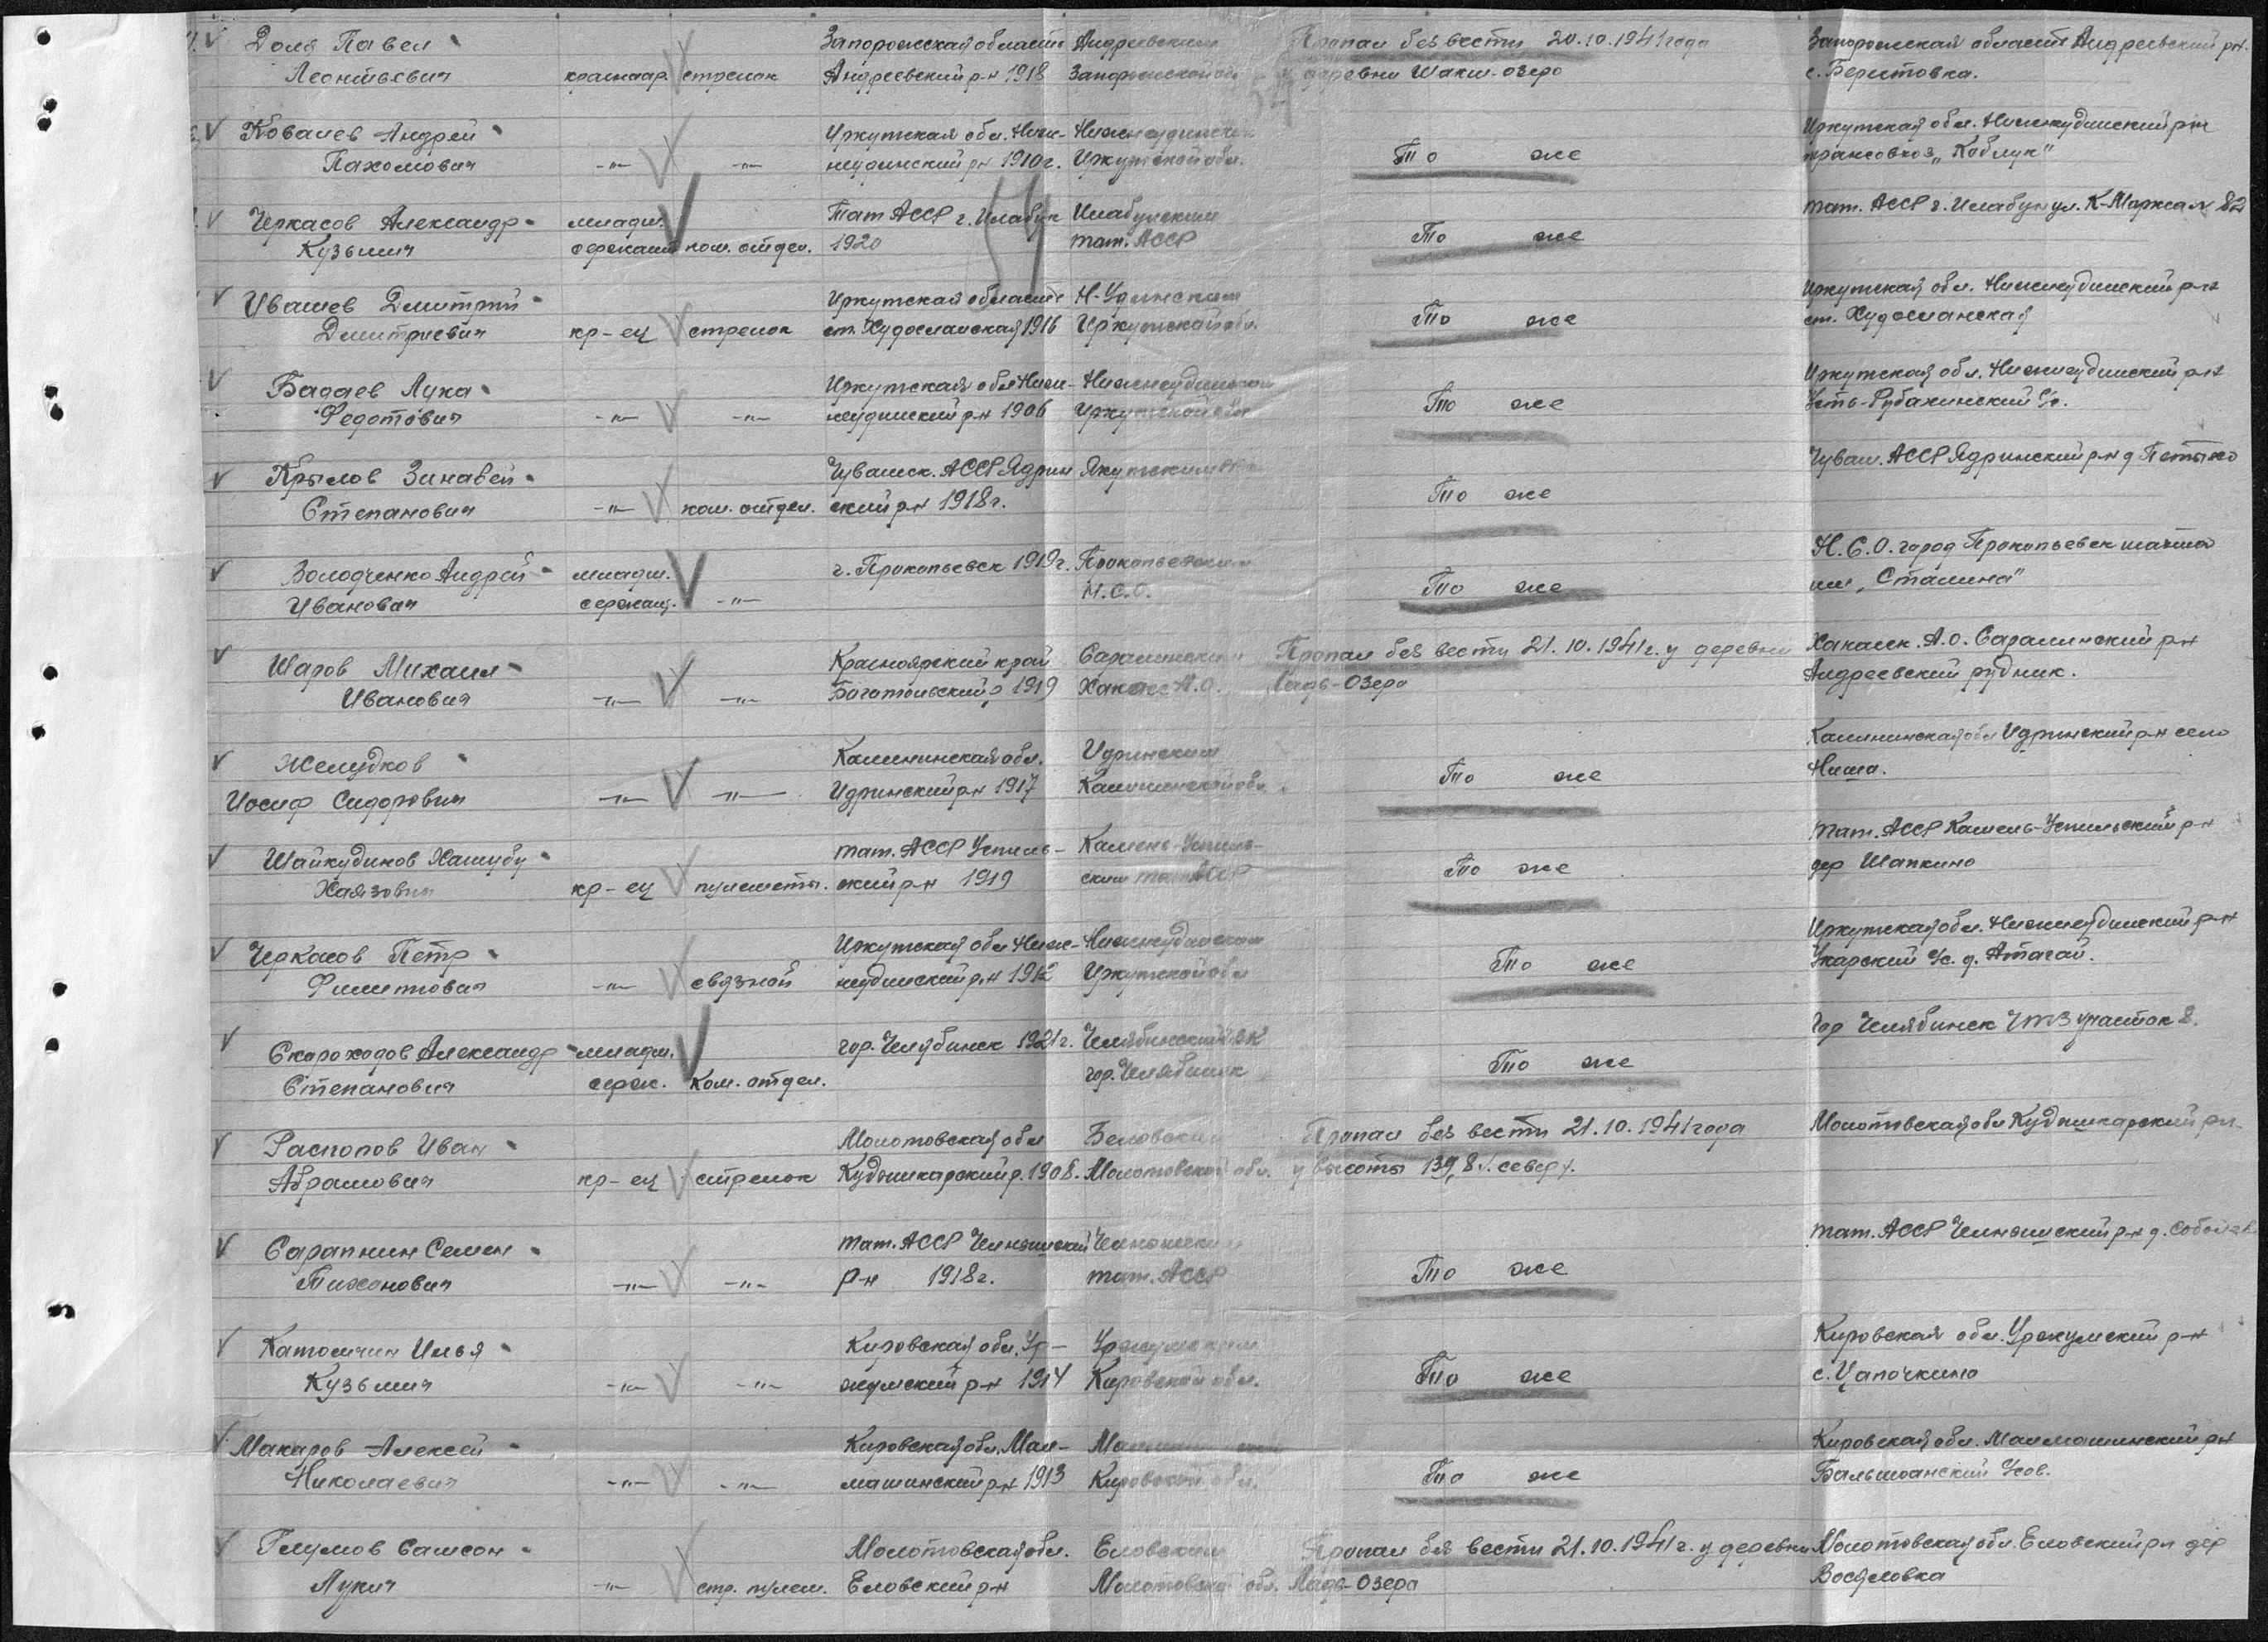 Доля Павел
Леонтьевич красноар. стрелок Запорожская область Андреевский р-н 1918 Андреевским Запорожской Пропал без вести 20.10.1941 года у деревни Шакш-озеро Запорожская область Андреевский р-н. с. Берестовка.
Ковалев Андрей
Пахомович -"- -"- Иркутская обл. Ниж-
неудинский р-н 1910 г. Нижнеудинским
Иркутской обл. То же Иркутская обл. Нижнеудинский р-н
трансовхоз „Каблук"
Черкасов Александр
Кузьмич младш.
сержант ком. отдел. Тат АССР г. Илабуг
1920 Илабужским
тат. АССР То же тат. АССР г. Илабуг ул. К-Маркса № 82
Ивашев Дмитрий
Дмитриевич кр-ец стрелок Иркутская область
ст. Худоеланская 1916 Н-Удинским
Иркутской обл. То же Иркутская обл. Нижнеудинский р-н
ст. Худоеланская
Бадаев Лука
Федотович -"- -"- Иркутская обл Ниж-
неудинский р-н 1906 Нижнеудинским
Иркутской обл То же Иркутская обл. Нижнеудинский р-н
Усть-Рубахинский с/с.
Крылов Зинавей
Степанович -"- ком. отдел. Чувашск. АССР Ядрин
ский р-н 1918 г. Якутским То же Чуваш. АССР Ядринский р-н д
Володченко Андрей
Иванович младш.
сержант. -"- г. Прокопьевск 1919 г. Прокопьевским
Н.С.О. То же Н.С.О. город Прокопьевск шахта
им „Сталина"
Шаров Михаил
Иванович -"- -"- Красноярский край
Боготольский р 1919 Саралинским
Хакасс А.О. Пропал без вести 21.10.1941 г. у деревни
Ладв-Озеро Хакасск. А.О. Саралинский р-н
Андреевский рудник.
Желудков
Иосиф Сидорович -"- -"- Калининская обл.
Идринский р-н 1917 Идринским
Калининской обл. То же Калининская обл Идринский р-н село
Ниша.
Шайкудинов Хашубу
Хаязович кр-ец пулеметч. тат. АССР Устиль-
ский р-н 1919 Камень-Устиль-
ским тат АССР То же тат. АССР Камень-Устильский р-н
дер Шапкино
Черкасов Петр
Филиппович -"- связной Иркутская обл Ниж-
неудинский р-н 1912 Нижнеудинским
Иркутской обл То же Иркутская обл. Нижнеудинский р-н
Укарский с/с. д. Атагай.
Скороходов Александр
Степанович младш.
серж. ком. отдел. гор. Челябинск 1921 г. Челябинский ВК
гор. Челябинск То же гор Челябинск ЧТЗ участок 8.
Распопов Иван
Абрамович кр-ец стрелок Молотовская обл
Кудымкарский р. 1908. Беловским
Молотовской обл. Пропал без вести 21.10.1941 года
у высоты 139,8 с. север. Молотовская обл Кудымкарский рн-
Сарапкин Семен
Тихонович -"- -"- тат. АССР Челнинский
р-н 1918 г. Челнинским
тат. АССР То же тат. АССР Челнинский р-н д.
Катомчин Илья
Кузьмич -"- -"- Кировская обл. Ур-
жумский р-н 1914 Уржумским
Кировской обл. То же Кировская обл. Уржумский р-н
с. Цапочкино
Макаров Алексей
Николаевич -"- -"- Кировская обл. Мал-
машинский р-н 1913
Кировской обл. То же Кировская обл. Малмашинский рн
с/сов.
Глумов Самсон
Лукич -"- стр. пулем. Молотовская обл.
Еловский р-н Еловским
Молотовской обл. Пропал без вести 21.10.1941 г. у деревни
Ладв-Озеро Молотовская обл. Еловский рн дер
Восяловка